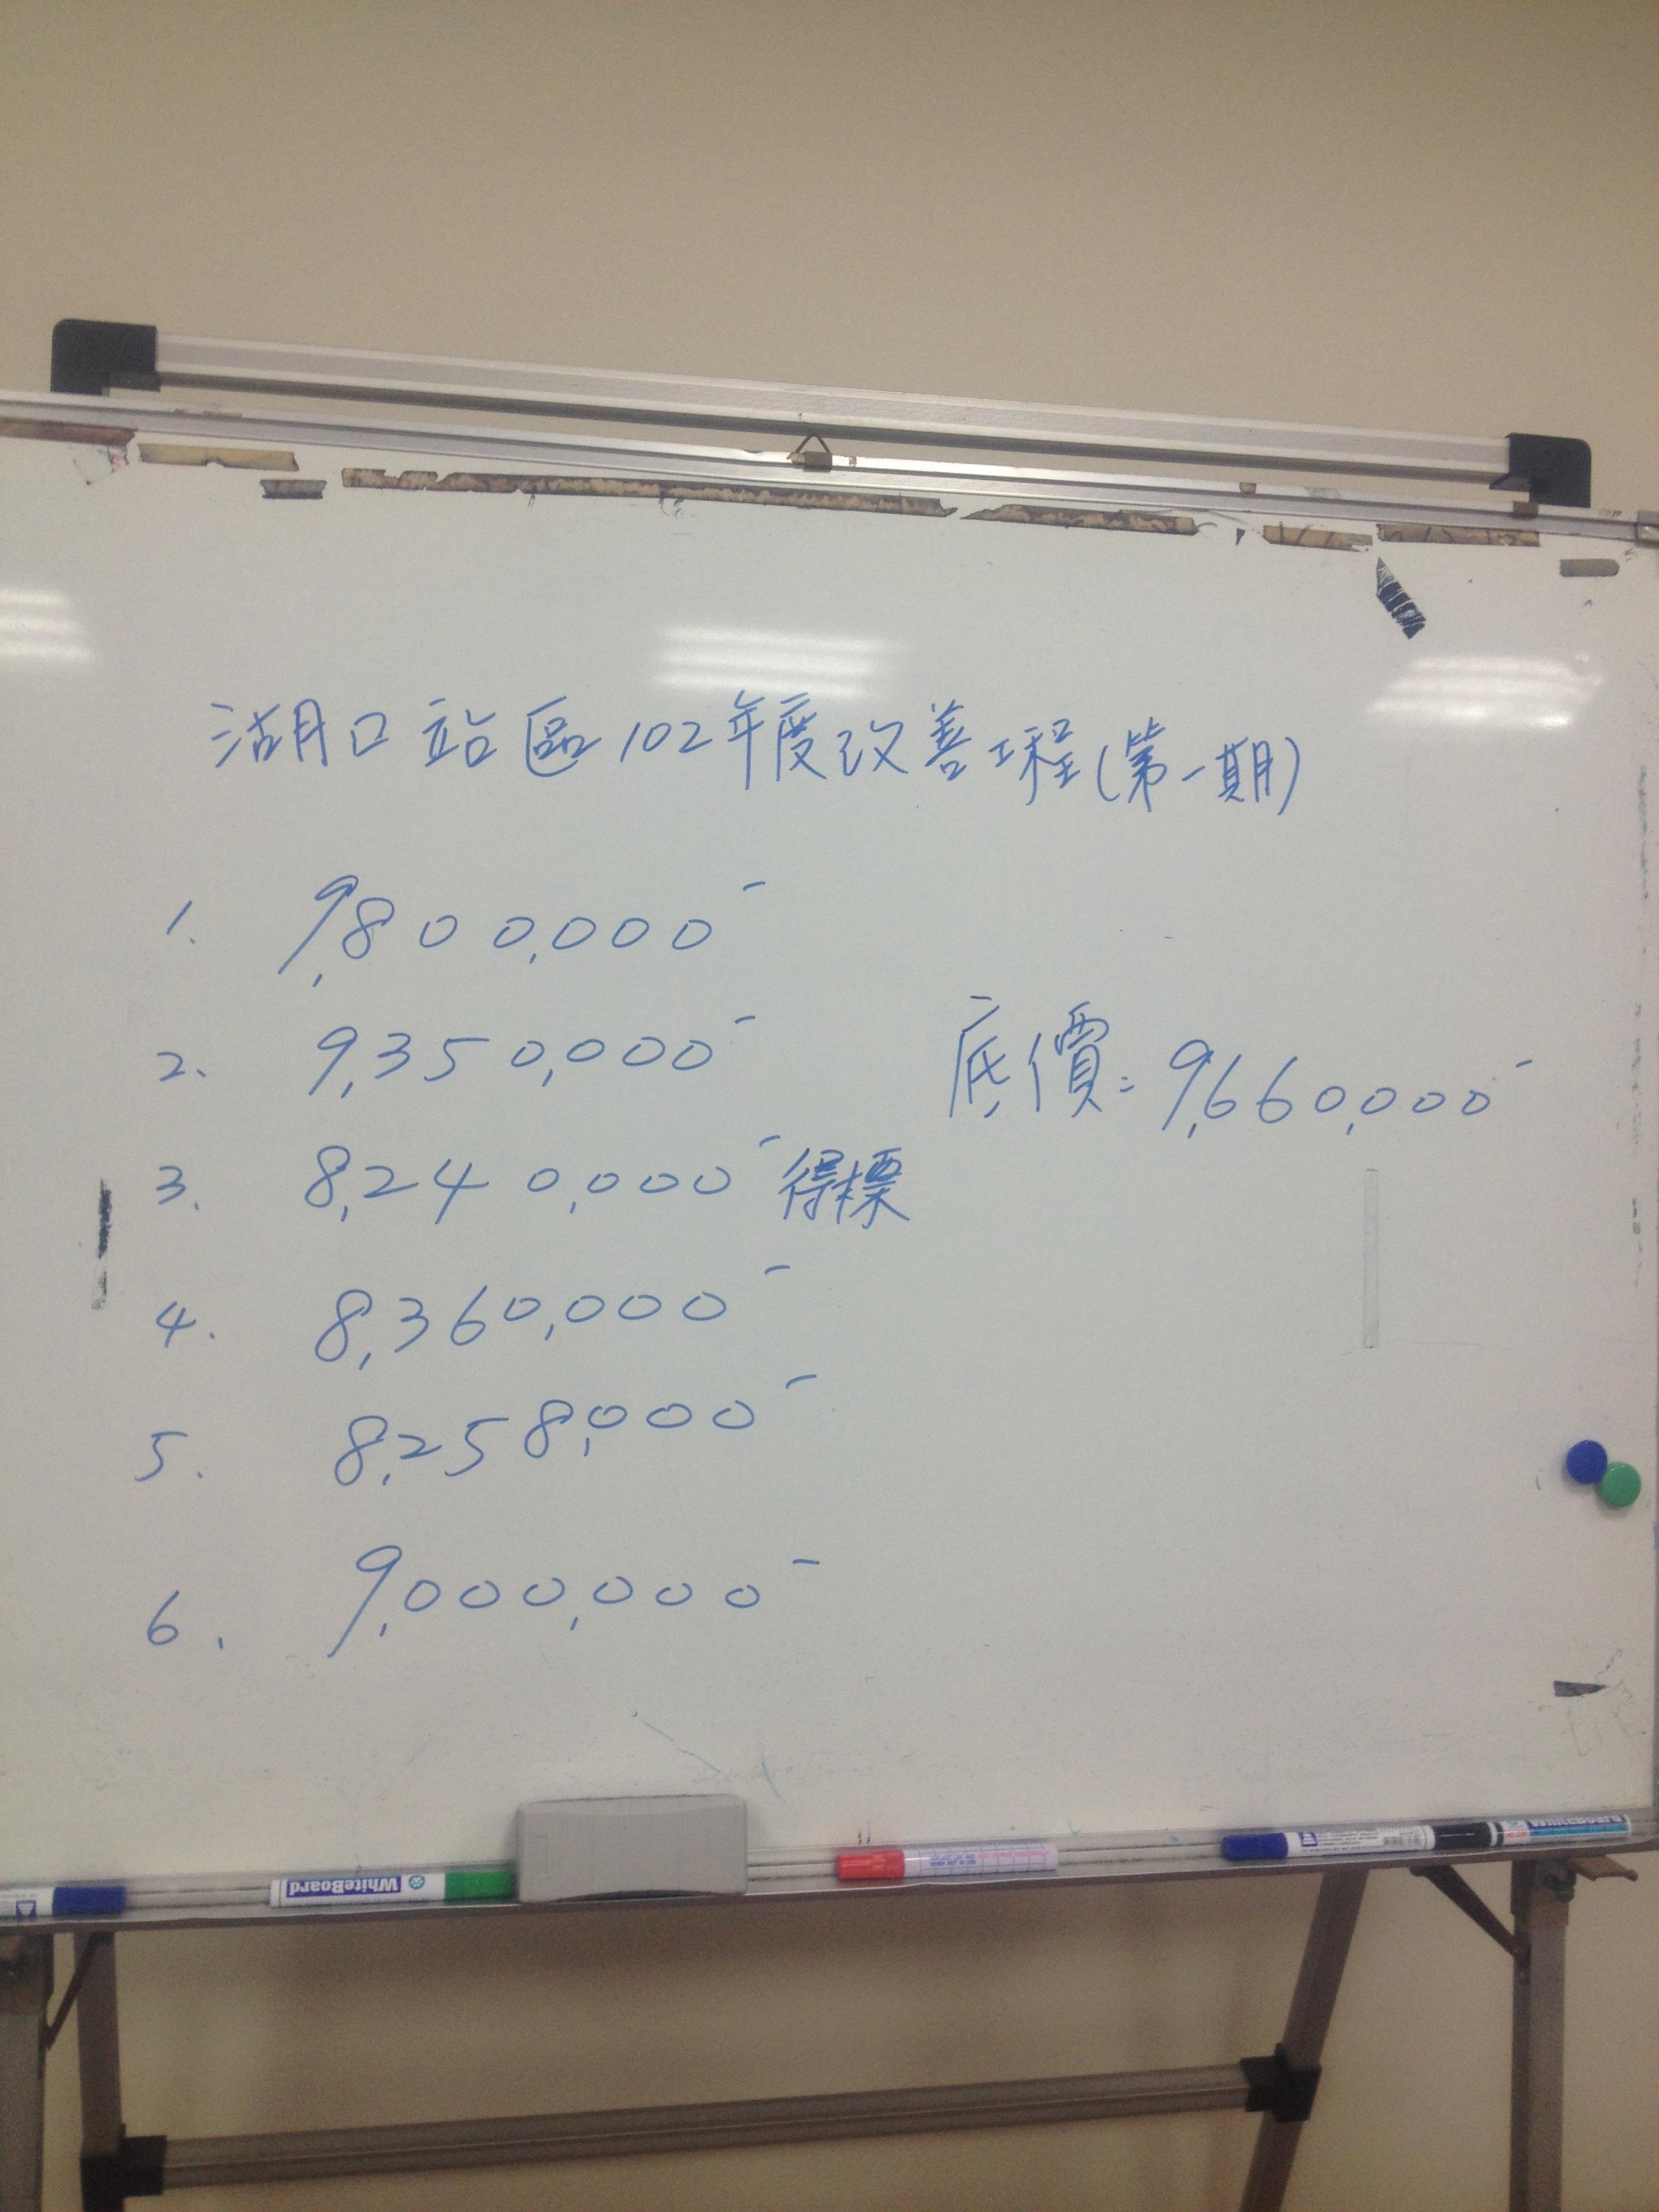 湖口站區102年度改善工程(第一期)
1. 9,800,000-
2. 9,350,000-
底價:9,660,000-
3. 8,240,000-得標
4. 8,360,000-
5. 8,258,000-
6. 9,000,000-
WhiteBoard